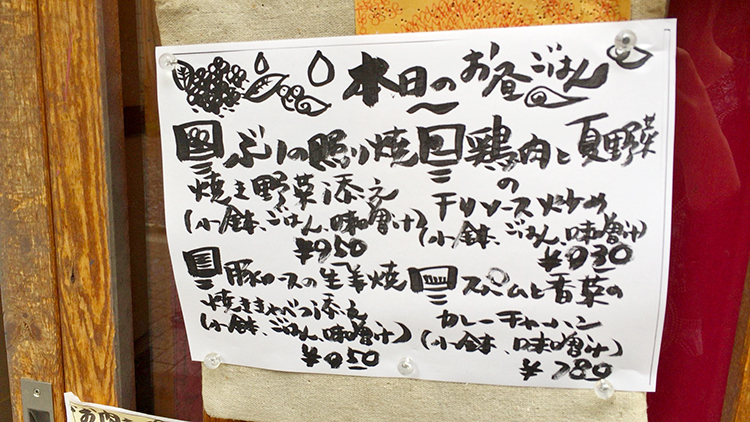 本日のお昼ごはん
ぶりの照り焼
焼き野菜添え
(小鉢、ごはん、味噌汁)
¥950
鶏肉と夏野菜
の
チリソース炒め
(小鉢、ごはん、味噌汁)
¥930
豚ロースの生姜焼
焼ききゃべつ添え
(小鉢、ごはん、味噌汁)
¥950
スパムと香菜の
カレーチャーハン
(小鉢、味噌汁)
¥780